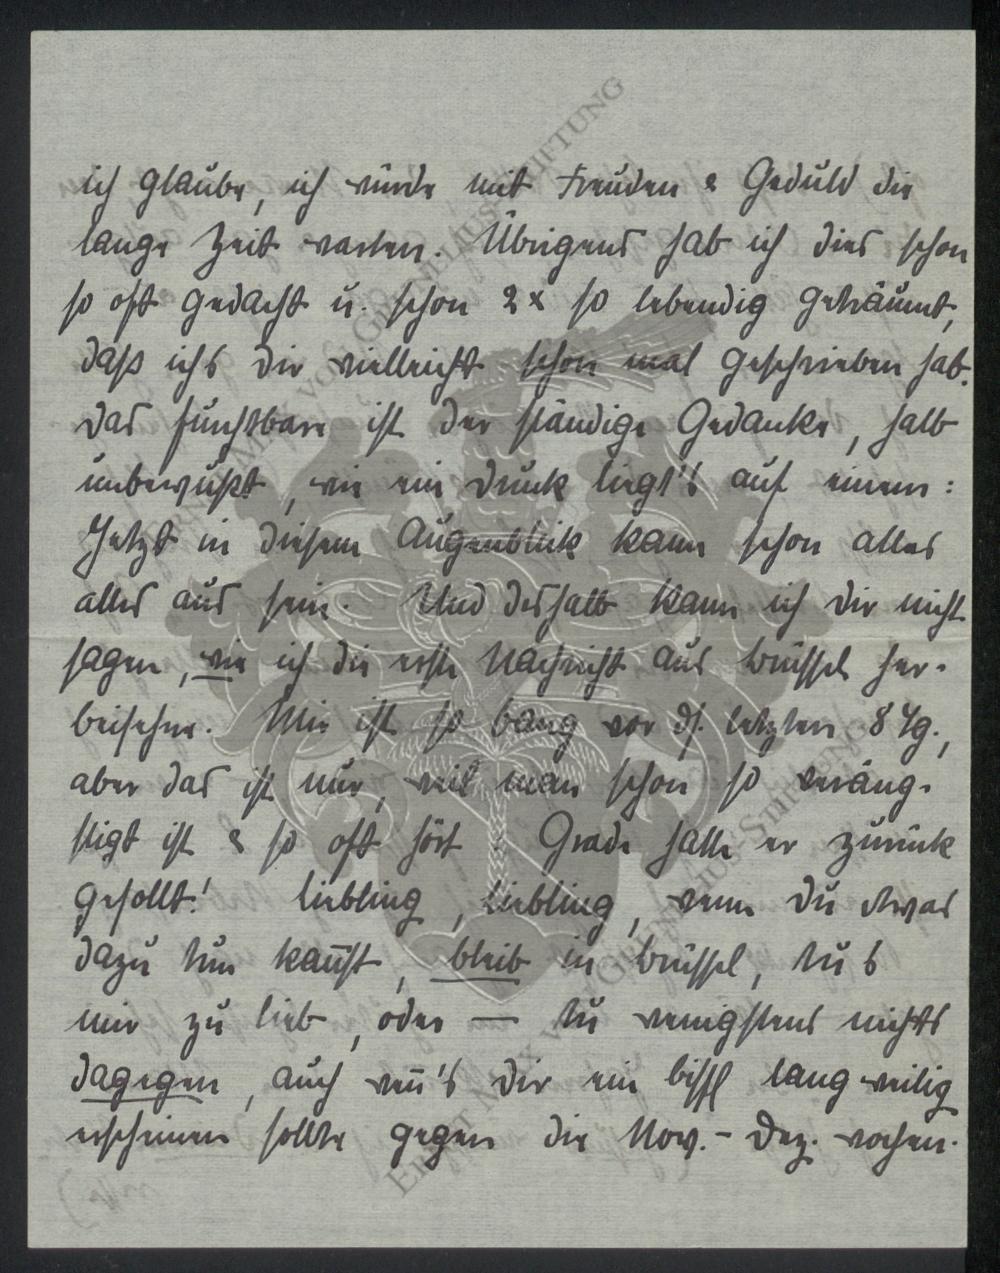 ich glaube, ich würde mit Freuden & Geduld die
lange Zeit warten. Übrigens hab ich dies schon
so oft gedacht u. schon 2x so lebendig geträumt,
daß ichs dir vielleicht schon mal geschrieben hab.
Das furchtbare ist der ständige Gedanke, halb
unbewußt, wie ein Druck liegt's auf einem:
Jetzt in diesem Augenblick kann schon alles
alles aus sein. Und deshalb kann ich dir nicht
sagen, wie ich die erste Nachricht aus Brüssel her-
beisehne. Mir ist so bang vor ds. letzten 8 Tg.,
aber das ist nur, weil man schon so veräng-
stigt ist & so oft hört: Grade hatte er zurück
gesollt! Liebling, Liebling, wenn du etwas
dazu tun kan̅st, bleib in Brüssel, tu's
mir zu lieb, oder — tu wenigstens nichts
dagegen, auch wen̅'s dir ein bissl langweilig
erscheinen sollte gegen die Nov.- Dez. wochen.